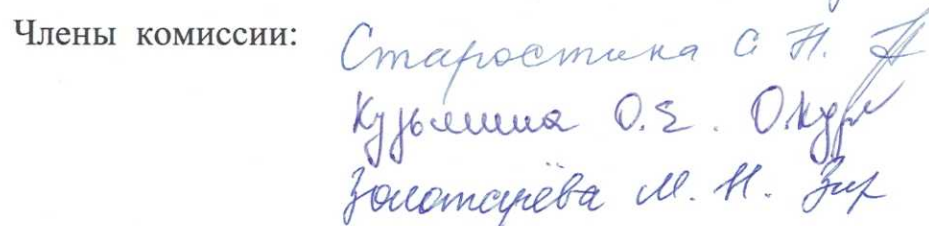 Члены комиссии: Старостина С Н.
Кузьмина О.Е.
Золотарёва М. Н.